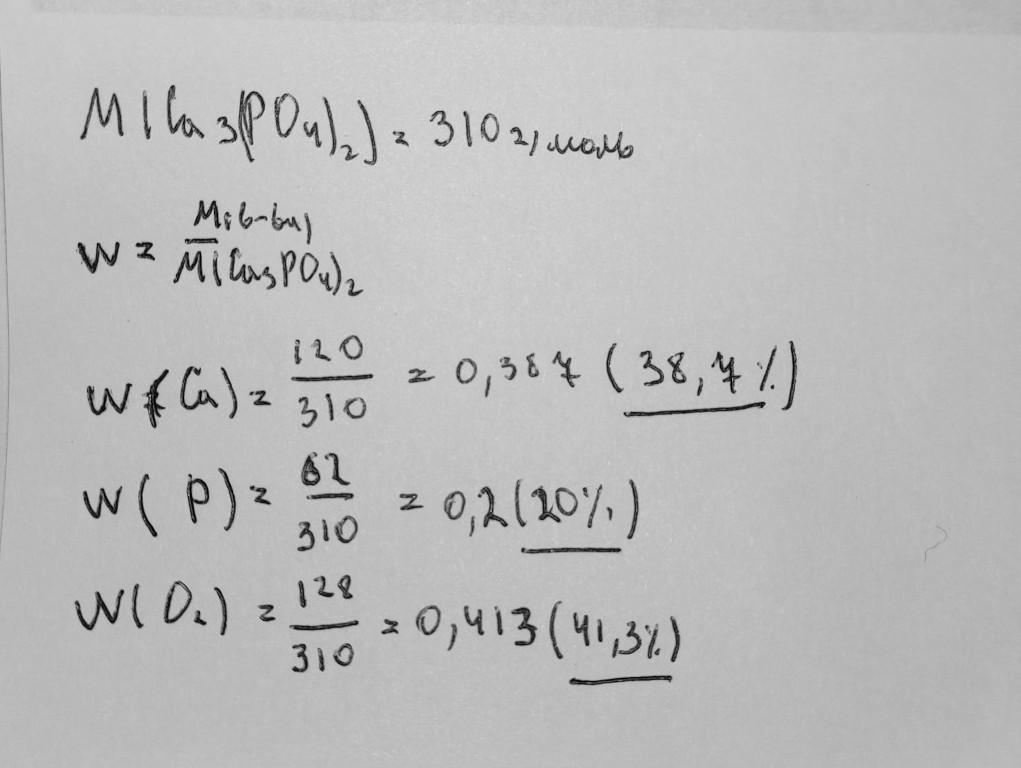 M(Ca3(PO4)2) = 310 г/моль
w = M(в-ва)
M(Ca3PO4)2
w(Ca) = 120/310 = 0,387 (38,7%)
w(P) = 62/310 = 0,2 (20%)
w(O2) = 128/310 = 0,413 (41,3%)